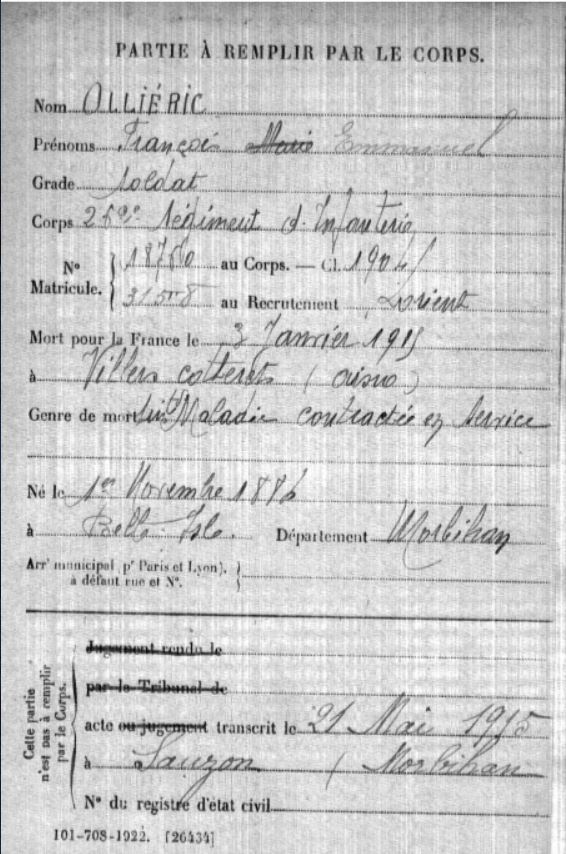 PARTIE À REMPLIR PAR LE CORPS.
Nom OLLIÉRIC
Prénoms François Marie Emmanuel
Grade soldat
Corps Régiment d'Infanterie
N° Matricule. 18760 au Corps. — Cl. 1904
au Recrutement Lorient
Mort pour la France le 3 Janvier 1915
à Villers cotterets (aisne)
Genre de mort Suite Maladie contractée en Service
Né le 1er Novembre 1884
à Belle-Isle. Département Morbihan
Arrt municipal (pr Paris et Lyon),
à défaut rue et N°.
Cette partie n'est pas à remplir par le Corps.
Jugement rendu le
par le Tribunal de
acte ou jugement transcrit le 21 Mai 1915
à Sauzon (Morbihan
N° du registre d'état civil
101-708-1922. [26434]